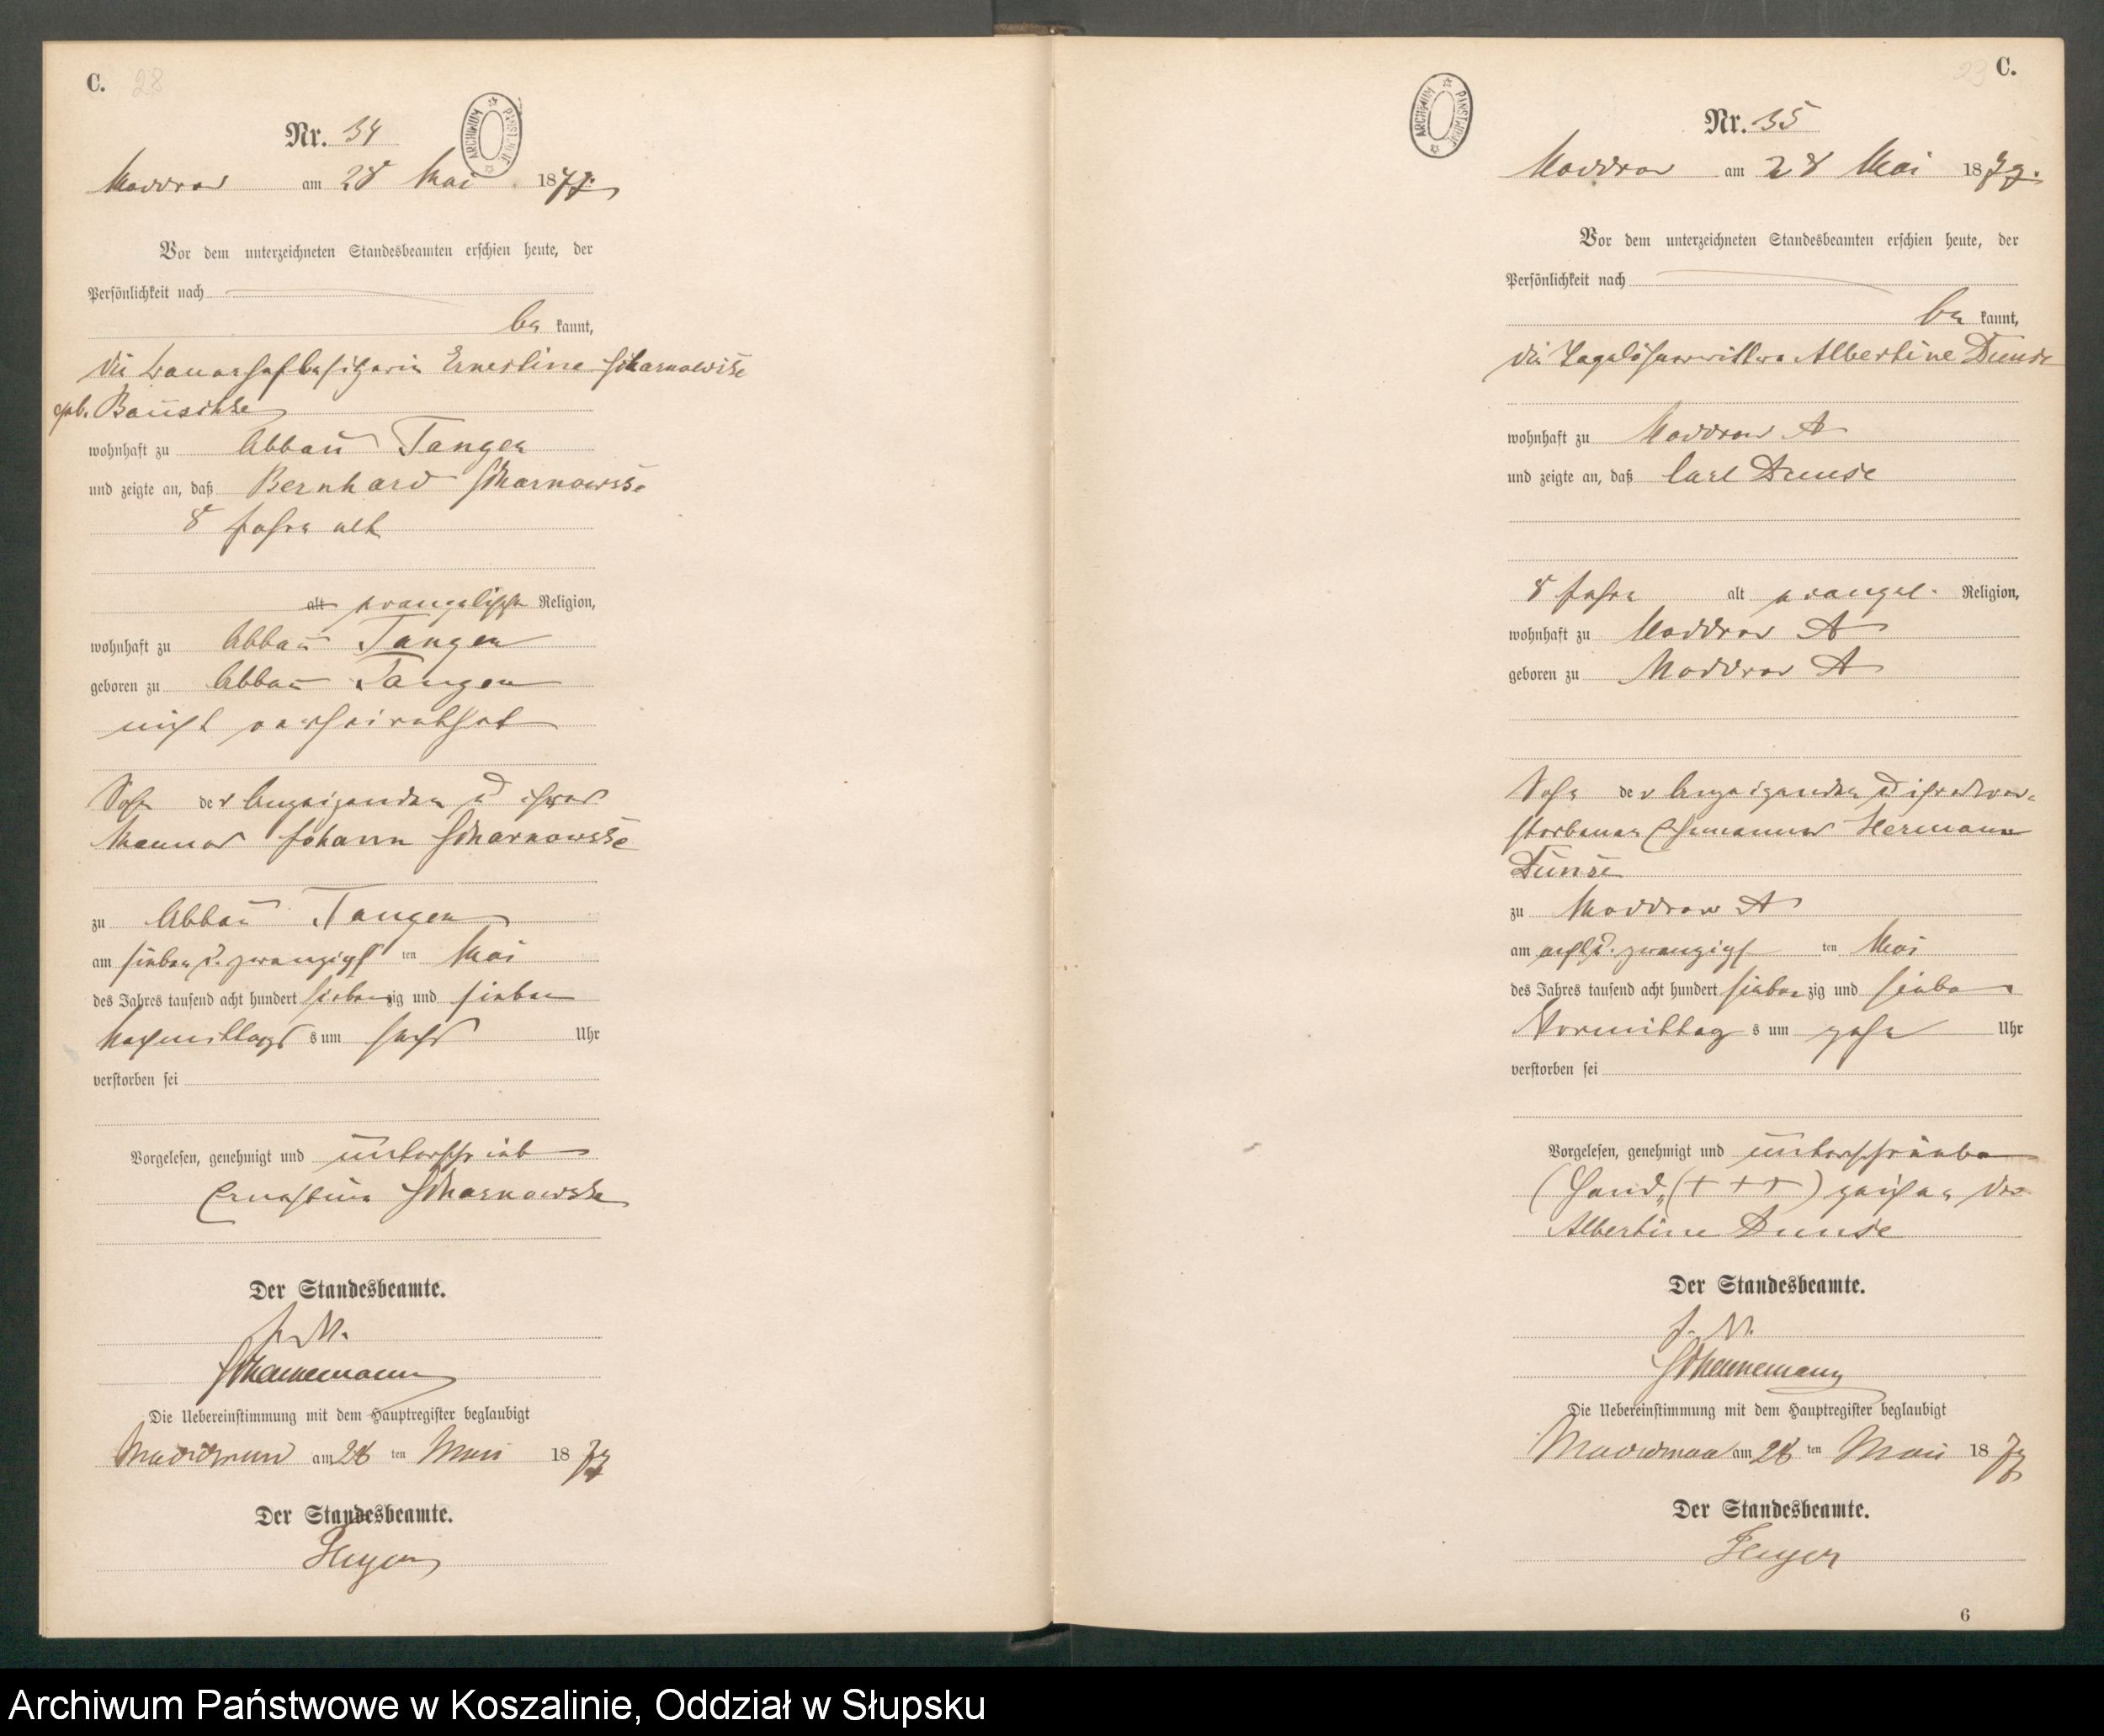 C. 28
ARCHIWUM PAŃSTWOWE
Nr. 34
Moddrow am 28 Mai 1877.
Vor dem unterzeichneten Standesbeamten erschien heute, der
Persönlichkeit nach
be kannt,
die Bauerhofbesitzerin Ernestine Scharnowske
geb.
wohnhaft zu Abbau Tangen
und zeigte an, daß Bernhard Scharnowske
8 Jahre alt
alt evangelischer Religion,
wohnhaft zu Abbau Tangen
geboren zu Abbau Tangen
nicht verheirathet
Sohn der Anzeigenden u ihres
Mannes Johann Scharnowske
zu Abbau Tangen
am sieben u. zwanzigst ten Mai
des Jahres tausend acht hundert siebenzig und sieben
Nachmittags s um sechs Uhr
verstorben sei
Vorgelesen, genehmigt und unterschrieb
Ernestine Scharnowske
Der Standesbeamte.
J. V.
Schennemann
Die Uebereinstimmung mit dem Hauptregister beglaubigt
Moddrow am 28 ten Mai 1877
Der Standesbeamte.
23 C.
ARCHIWUM PAŃSTWOWE
Nr. 35
Moddrow am 28 Mai 1877.
Vor dem unterzeichneten Standesbeamten erschien heute, der
Persönlichkeit nach
be kannt,
die Tagelöhnerwittwe Albertine Dunse
wohnhaft zu Moddrow A
und zeigte an, daß Carl Dunse
8 Jahre alt evangel. Religion,
wohnhaft zu Moddrow A
geboren zu Moddrow A
Sohn der Anzeigenden u ihres ver-
storbenen Ehemannes Hermann
Dunse
zu Moddrow A
am acht u. zwanzigst ten Mai
des Jahres tausend acht hundert siebenzig und sieben
Vormittag s um zehn Uhr
verstorben sei
Vorgelesen, genehmigt und unterschrieben
(Hand„(+ + +) zeichen der
Albertine Dunse
Der Standesbeamte.
J. V.
Schennemann
Die Uebereinstimmung mit dem Hauptregister beglaubigt
Moddrow am 28 ten Mai 1877
Der Standesbeamte.
6
Archiwum Państwowe w Koszalinie, Oddział w Słupsku